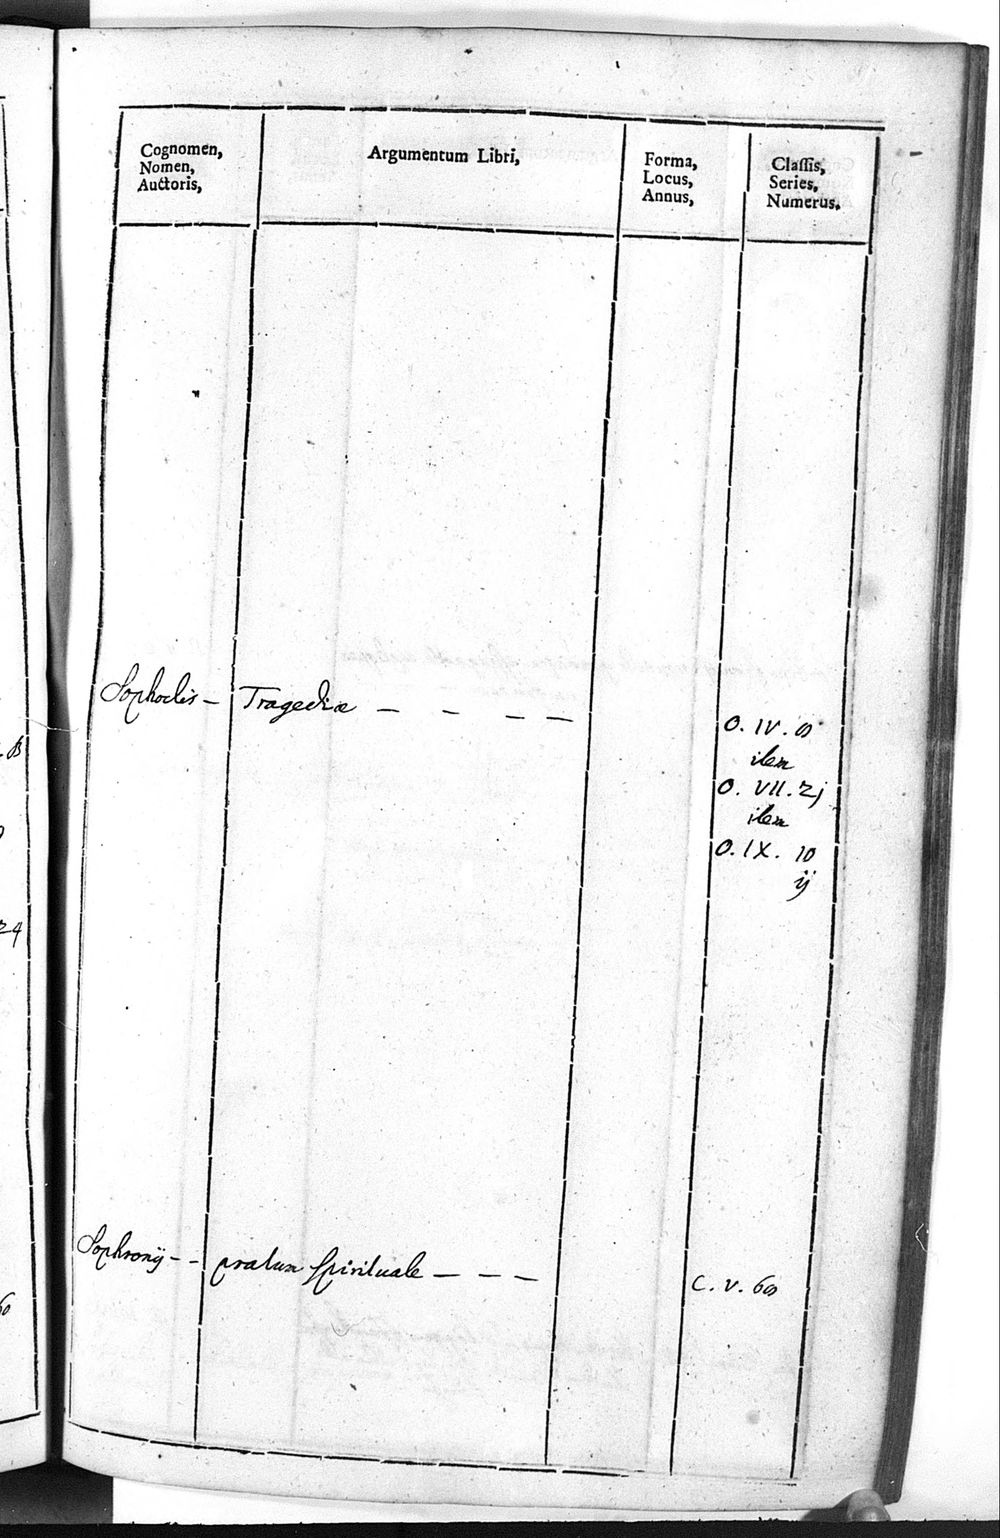 Cognomen,
Nomen,
Auctoris,
Argumentum Libri,
Forma,
Locus,
Annus,
Classis,
Series,
Numerus,
Sophoclis – Tragediæ – – – –
O. IV.
item
O. VII. 2j
item
O. IX. 10
ij
Sophronij - - pratum spirituale – – –
C. V.
24